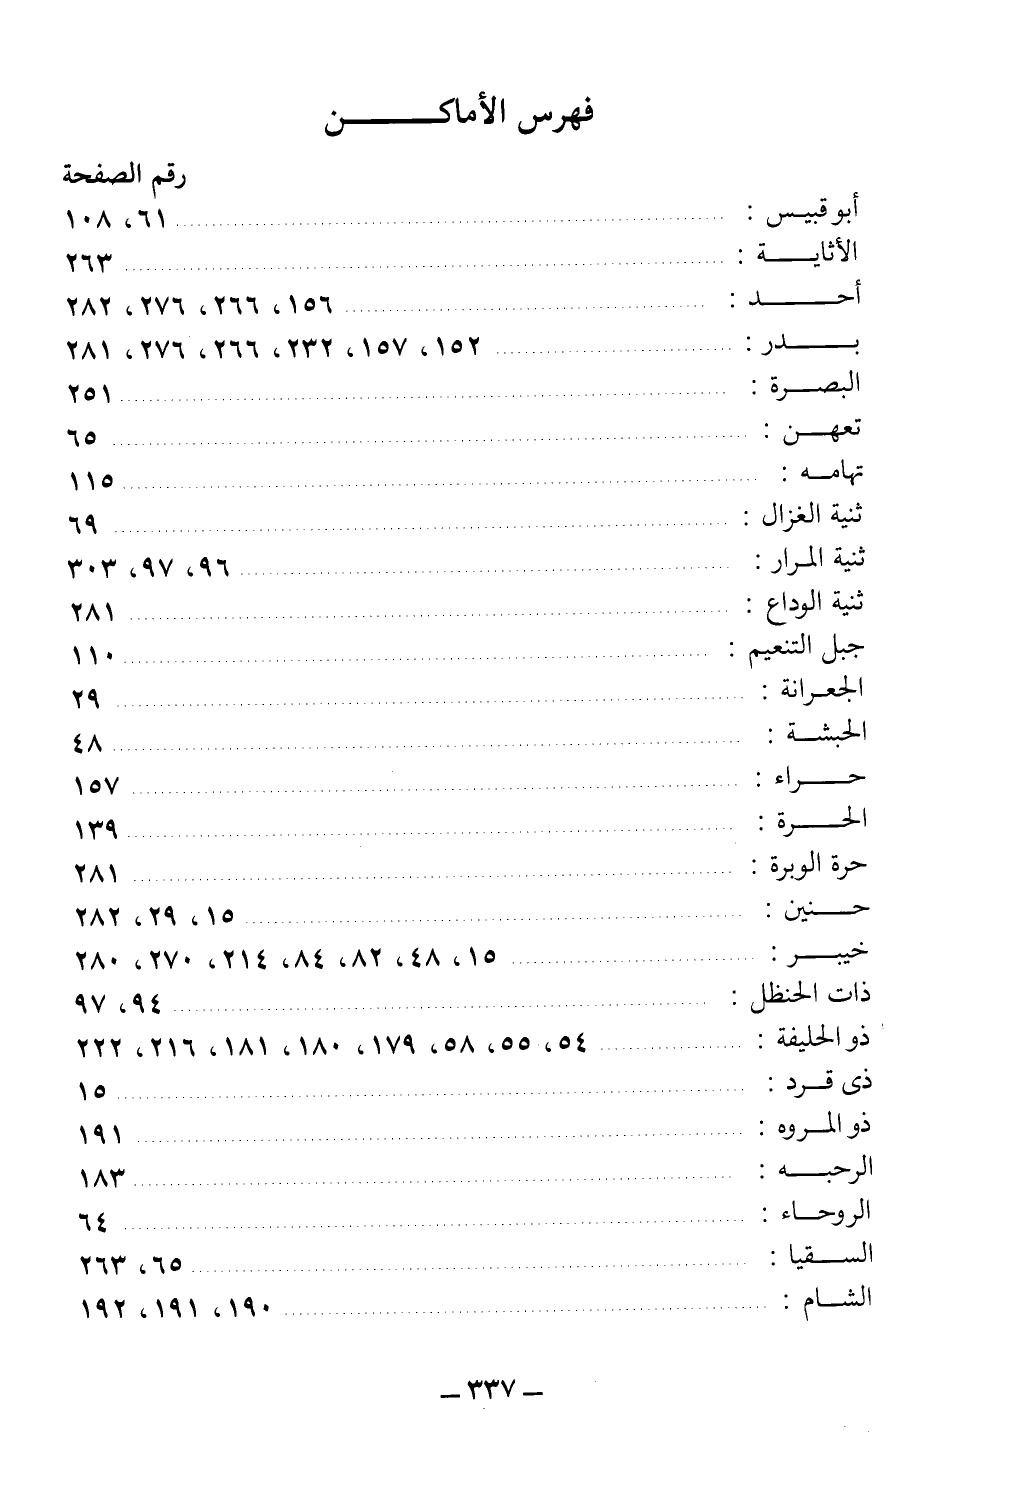 فهرس الأماكن
رقم الصفحة
أبو قبيس : ٦١، ١٠٨
الأثاية : ٢٦٣
أحد : ١٥٦، ٢٦٦، ٢٧٦، ٢٨٢
بدر : ١٥٢، ١٥٧، ٢٣٢، ٢٦٦، ٢٧٦، ٢٨١
البصرة : ٢٥١
تعهن : ٦٥
تهامه : ١١٥
ثنية الغزال : ٦٩
ثنية المرار : ٩٦، ٩٧، ٣٠٣
ثنية الوداع : ٢٨١
جبل التنعيم : ١١٠
الجعرانة : ٢٩
الحبشة : ٤٨
حراء : ١٥٧
الحرة : ١٣٩
حرة الوبرة : ٢٨١
حنين : ١٥، ٢٩، ٢٨٢
خيبر : ١٥، ٤٨، ٨٢، ٨٤، ٢١٤، ٢٧٠، ٢٨٠
ذات الحنظل : ٩٤، ٩٧
ذو الحليفة : ٥٤، ٥٥، ٥٨، ١٧٩، ١٨٠، ١٨١، ٢١٦، ٢٢٢
ذى قرد : ١٥
ذو المروه : ١٩١
الرحبه : ١٨٣
الروحاء : ٦٤
السقيا : ٦٥، ٢٦٣
الشام : ١٩٠، ١٩١، ١٩٢
ــ ٣٣٧ ــ